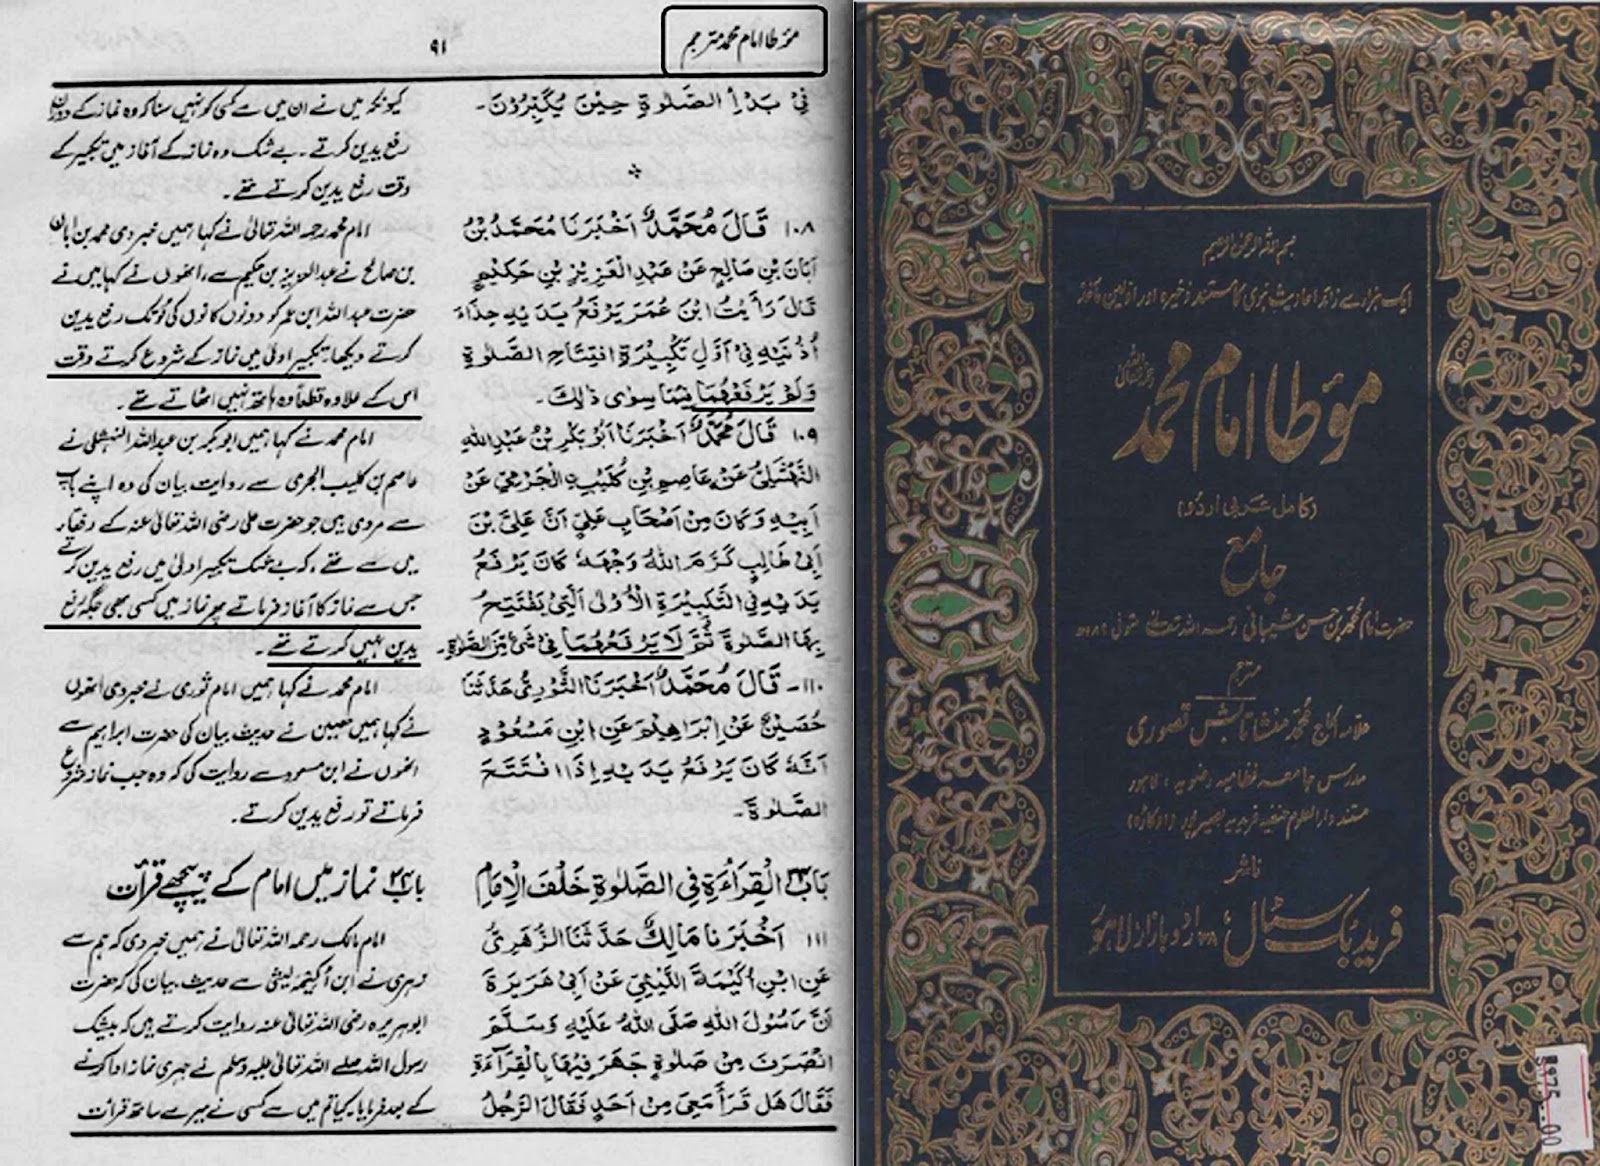 مؤطا امام محمد مترجم
۹۱
فِیْ بَدْأِ الصَّلٰوۃِ حِیْنَ یُکَبِّرُوْنَ۔
۱۰۸ قَالَ مُحَمَّدٌ اَخْبَرَنَا مُحَمَّدُ بْنُ
اَبَانَ بْنِ صَالِحٍ عَنْ عَبْدِ الْعَزِیْزِ بْنِ حَکِیْمٍ
قَالَ رَأَیْتُ ابْنَ عُمَرَ یَرْفَعُ یَدَیْہِ حِذَاءَ
اُذُنَیْہِ فِیْ اَوَّلِ تَکْبِیْرَۃِ افْتِتَاحِ الصَّلٰوۃِ
وَلَمْ یَرْفَعْھُمَا فِیْمَا سِوٰی ذٰلِکَ۔
۱۰۹ قَالَ مُحَمَّدٌ اَخْبَرَنَا اَبُوْبَکْرِ بْنُ عَبْدِ اللّٰہِ
النَّھْشَلِیُّ عَنْ عَاصِمِ بْنِ کُلَیْبِ الْجَرْمِیِّ عَنْ
اَبِیْہِ وَکَانَ مِنْ اَصْحَابِ عَلِیٍّ اَنَّ عَلِیَّ بْنَ
اَبِیْ طَالِبٍ کَرَّمَ اللّٰہُ وَجْھَہٗ کَانَ یَرْفَعُ
یَدَیْہِ فِی التَّکْبِیْرَۃِ الْاُوْلٰی الَّتِیْ یَفْتَتِحُ
بِھَا الصَّلٰوۃَ ثُمَّ لَا یَرْفَعُھُمَا فِیْ شَیْءٍ مِّنَ الصَّلٰوۃِ۔
۱۱۰۔ قَالَ مُحَمَّدٌ اَخْبَرَنَا الثَّوْرِیُّ حَدَّثَنَا
حُصَیْنٌ عَنْ اِبْرَاھِیْمَ عَنِ ابْنِ مَسْعُوْدٍ
اَنَّہٗ کَانَ یَرْفَعُ یَدَیْہِ اِذَا افْتَتَحَ
الصَّلٰوۃَ۔
بَابُ الْقِرَاءَۃِ فِی الصَّلٰوۃِ خَلْفَ الْاِمَامِ
۱۱۱ اَخْبَرَنَا مَالِکٌ حَدَّثَنَا الزُّھْرِیُّ
عَنِ ابْنِ اُکَیْمَۃَ اللَّیْثِیِّ عَنْ اَبِیْ ھُرَیْرَۃَ
اَنَّ رَسُوْلَ اللّٰہِ صَلَّی اللّٰہُ عَلَیْہِ وَسَلَّمَ
انْصَرَفَ مِنْ صَلٰوۃٍ جَھَرَ فِیْھَا بِالْقِرَآءَۃِ
فَقَالَ ھَلْ قَرَأَ مَعِیَ مِنْ اَحَدٍ فَقَالَ الرَّجُلُ
کیونکہ میں نے ان میں سے کسی کو نہیں سنا کہ وہ نماز کے دوران
رفع یدین کرتے۔ بے شک وہ نماز کے آغاز میں تکبیر کے
وقت رفع یدین کرتے تھے۔
امام محمد رحمہ اللہ تعالیٰ نے کہا ہمیں خبر دی محمد بن ابان
بن صالح نے عبدالعزیز بن حکیم سے، انھوں نے کہا میں نے
حضرت عبداللہ ابن عمر کو دونوں کانوں کی لَو تک رفع یدین
کرتے دیکھا، تکبیر اولیٰ میں نماز کے شروع کرتے وقت
اس کے علاوہ قطعاً وہ ہاتھ نہیں اٹھاتے تھے۔
امام محمد نے کہا ہمیں ابو بکر بن عبداللہ النہشلی نے
عاصم بن کلیب الجرمی سے روایت بیان کی وہ اپنے باپ
سے مروی ہیں جو حضرت علی رضی اللہ تعالیٰ عنہ کے رفقاء
میں سے تھے، کہ بے شک تکبیر اولیٰ میں رفع یدین کرتے
جس سے نماز کا آغاز فرماتے پھر نماز میں کسی بھی جگہ رفع
یدین نہیں کرتے تھے۔
امام محمد نے کہا ہمیں امام ثوری نے خبر دی انھوں
نے کہا ہمیں حصین نے حدیث بیان کی حضرت ابراہیم سے
انھوں نے ابن مسعود سے روایت کی کہ وہ جب نماز شروع
فرماتے تو رفع یدین کرتے۔
باب نماز میں امام کے پیچھے قرأت
امام مالک رحمہ اللہ تعالیٰ نے ہمیں خبر دی کہ ہم سے
زہری نے ابن اُکیمہ لیثی سے حدیث بیان کی کہ حضرت
ابوہریرہ رضی اللہ تعالیٰ عنہ روایت کرتے ہیں کہ بیشک
رسول اللہ صلے اللہ تعالیٰ علیہ وسلم نے جہری نماز ادا کرنے
کے بعد فرمایا۔ کیا تم میں سے کسی نے میرے ساتھ قرأت
بسم اللہ الرحمن الرحیم
ایک ہزار سے زائد احادیث نبوی کا مستند ذخیرہ اور اوّلین ماخذ
مؤطا امام محمد
رحمۃ اللہ تعالیٰ
(کامل عربی اردو)
جامع
حضرت امام محمد بن حسن شیبانی رحمہ اللہ تعالیٰ متوفی ۱۸۹ھ
مترجم
علامہ الحاج محمد منشا تابش قصوری
مدرس جامعہ نظامیہ رضویہ، لاہور
مستند دارالعلوم حنفیہ فریدیہ بصیرپور (اوکاڑہ)
ناشر
فرید بک سٹال، اردو بازار لاہور